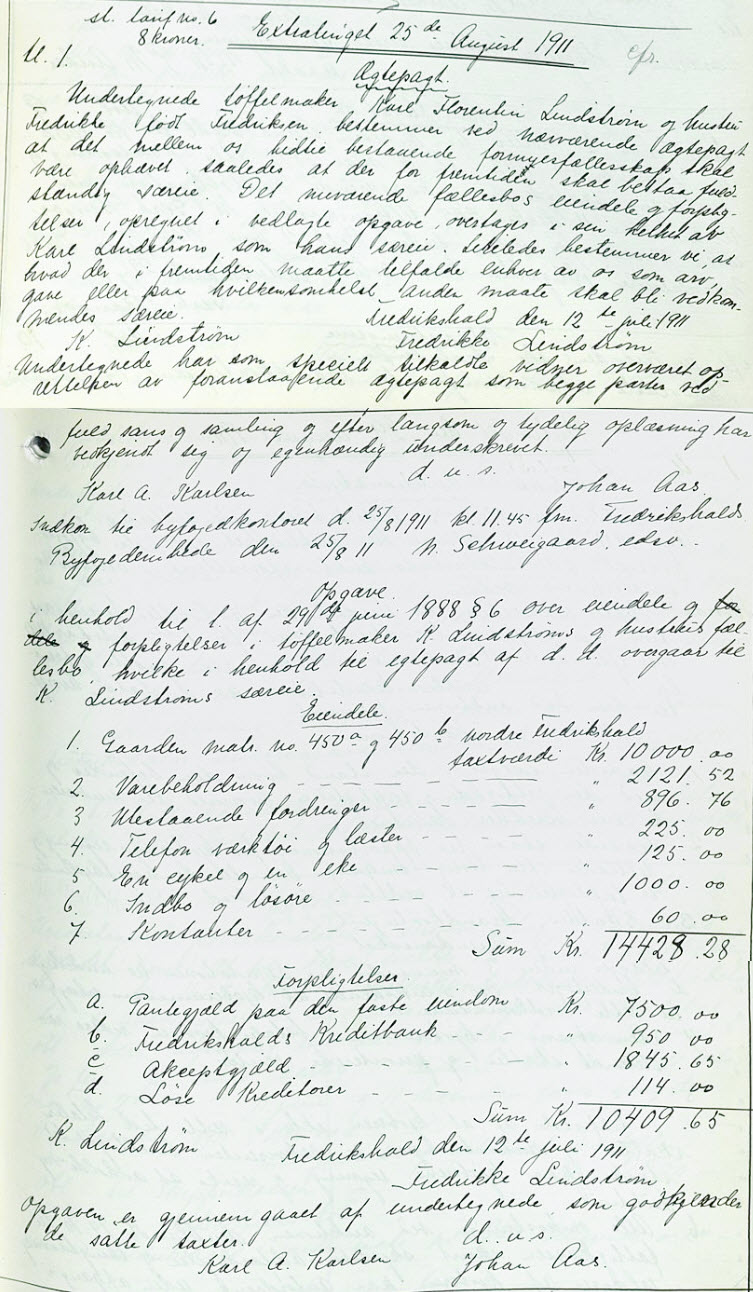 st. tarif no. 6
8 kroner.
Extratinget 25de August 1911
cfr.
bl. 1.
Ægtepagt.
Undertegnede tøffelmaker Karl Florentin Lindstrøm og hustru
Fredrikke født Fredriksen bestemmer ved nærværende ægtepagt
at det mellem os hidtil bestaaende formuesfællesskap skal
være ophævet saaledes at der for fremtiden skal bestaa fuld-
stændig særeie. Det nuværende fællesbos eiendele og forplig-
telser, opregnet i vedlagte opgave, overtages i sin helhet av
Karl Lindstrøm som hans særeie. Likeledes bestemmer vi, at
hvad der i fremtiden maatte tilfalde enhver av os som arv,
gave eller paa hvilkensomhelst anden maate skal bli vedkom-
mendes særeie.
Fredrikshald den 12te juli 1911
K. Lindstrøm Fredrikke Lindstrøm
Undertegnede har som specielt tilkaldte vidner overværet op-
rettelsen av foranstaaende ægtepagt som begge parter ved
fuld sans og samling og efter langsom og tydelig oplæsning har
vedkjendt sig og egenhændig underskrevet.
d. u. s.
Karl A. Karlsen Johan Aas.
Indkom til byfogedkontoret d. 25/8 1911 kl. 11.45 fm. Fredrikshalds
Byfogedembede den 25/8 11 N. Schweigaard, edsv..
Opgave
i henhold til l. af 29de juni 1888 § 6 over eiendele og for
dele og forpligtelser i tøffelmaker K Lindstrøms og hustrus fæl-
lesbo, hvilke i henhold til egtepagt af d. d. overgaar til
K. Lindstrøms særeie.
Eiendele.
1. Gaarden matr. no. 450a og 450b nordre Fredrikshald
taxtværdi Kr. 10000.00
2. Varebeholdning " 2121.52
3 Utestaaende fordringer " 896.76
4. Telefon værktøi og læster " 225.00
5 En cykel og en eke " 125.00
6. Indbo og løsøre " 1000.00
7. Kontanter 60.00
Sum Kr. 14428.28
Forpligtelser.
a. Pantegjæld paa den faste eiendom Kr. 7500.00
b. Fredrikshalds Kreditbank " 950 00
c Akceptgjæld " 1845.65
d. Løse Kreditorer " 114.00
Sum Kr. 10409.65
K. Lindstrøm Fredrikshald den 12te juli 1911
Fredrikke Lindstrøm
Opgaven er gjennemgaaet af undertegnede som godkjender
de satte taxter.
d. u. s.
Karl A. Karlsen Johan Aas.